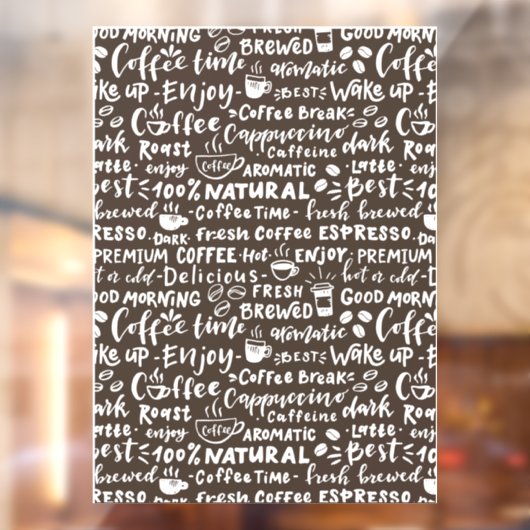 GOOD MORNING FRESH GOOD MORNING
Coffee time BREWED Coffee
aromatic
ke up - Enjoy - BEST Wake up -
Coffee Break
Coffee Cappuccino Coffee
dark Roast Caffeine dark Roast
Latte enjoy Coffee AROMATIC Latte enjoy
Best 100% NATURAL Best 100%
brewed - Coffee Time - fresh brewed
RESSO. DARK fresh COFFEE ESPRESSO. DARK
PREMIUM COFFEE Hot ENJOY. PREMIUM
t or cold - Delicious - hot or cold - De
GOOD MORNING FRESH GOOD MORNING
Coffee time BREWED Coffee
aromatic
ke up - Enjoy - BEST Wake up -
Coffee Break
Coffee Cappuccino Coffee
dark Roast Caffeine dark Roast
Latte enjoy Coffee AROMATIC Latte enjoy
Best 100% NATURAL Best 100%
brewed - Coffee Time - fresh brewed
ESPRESSO DARK fresh COFFEE ESPRESSO DARK